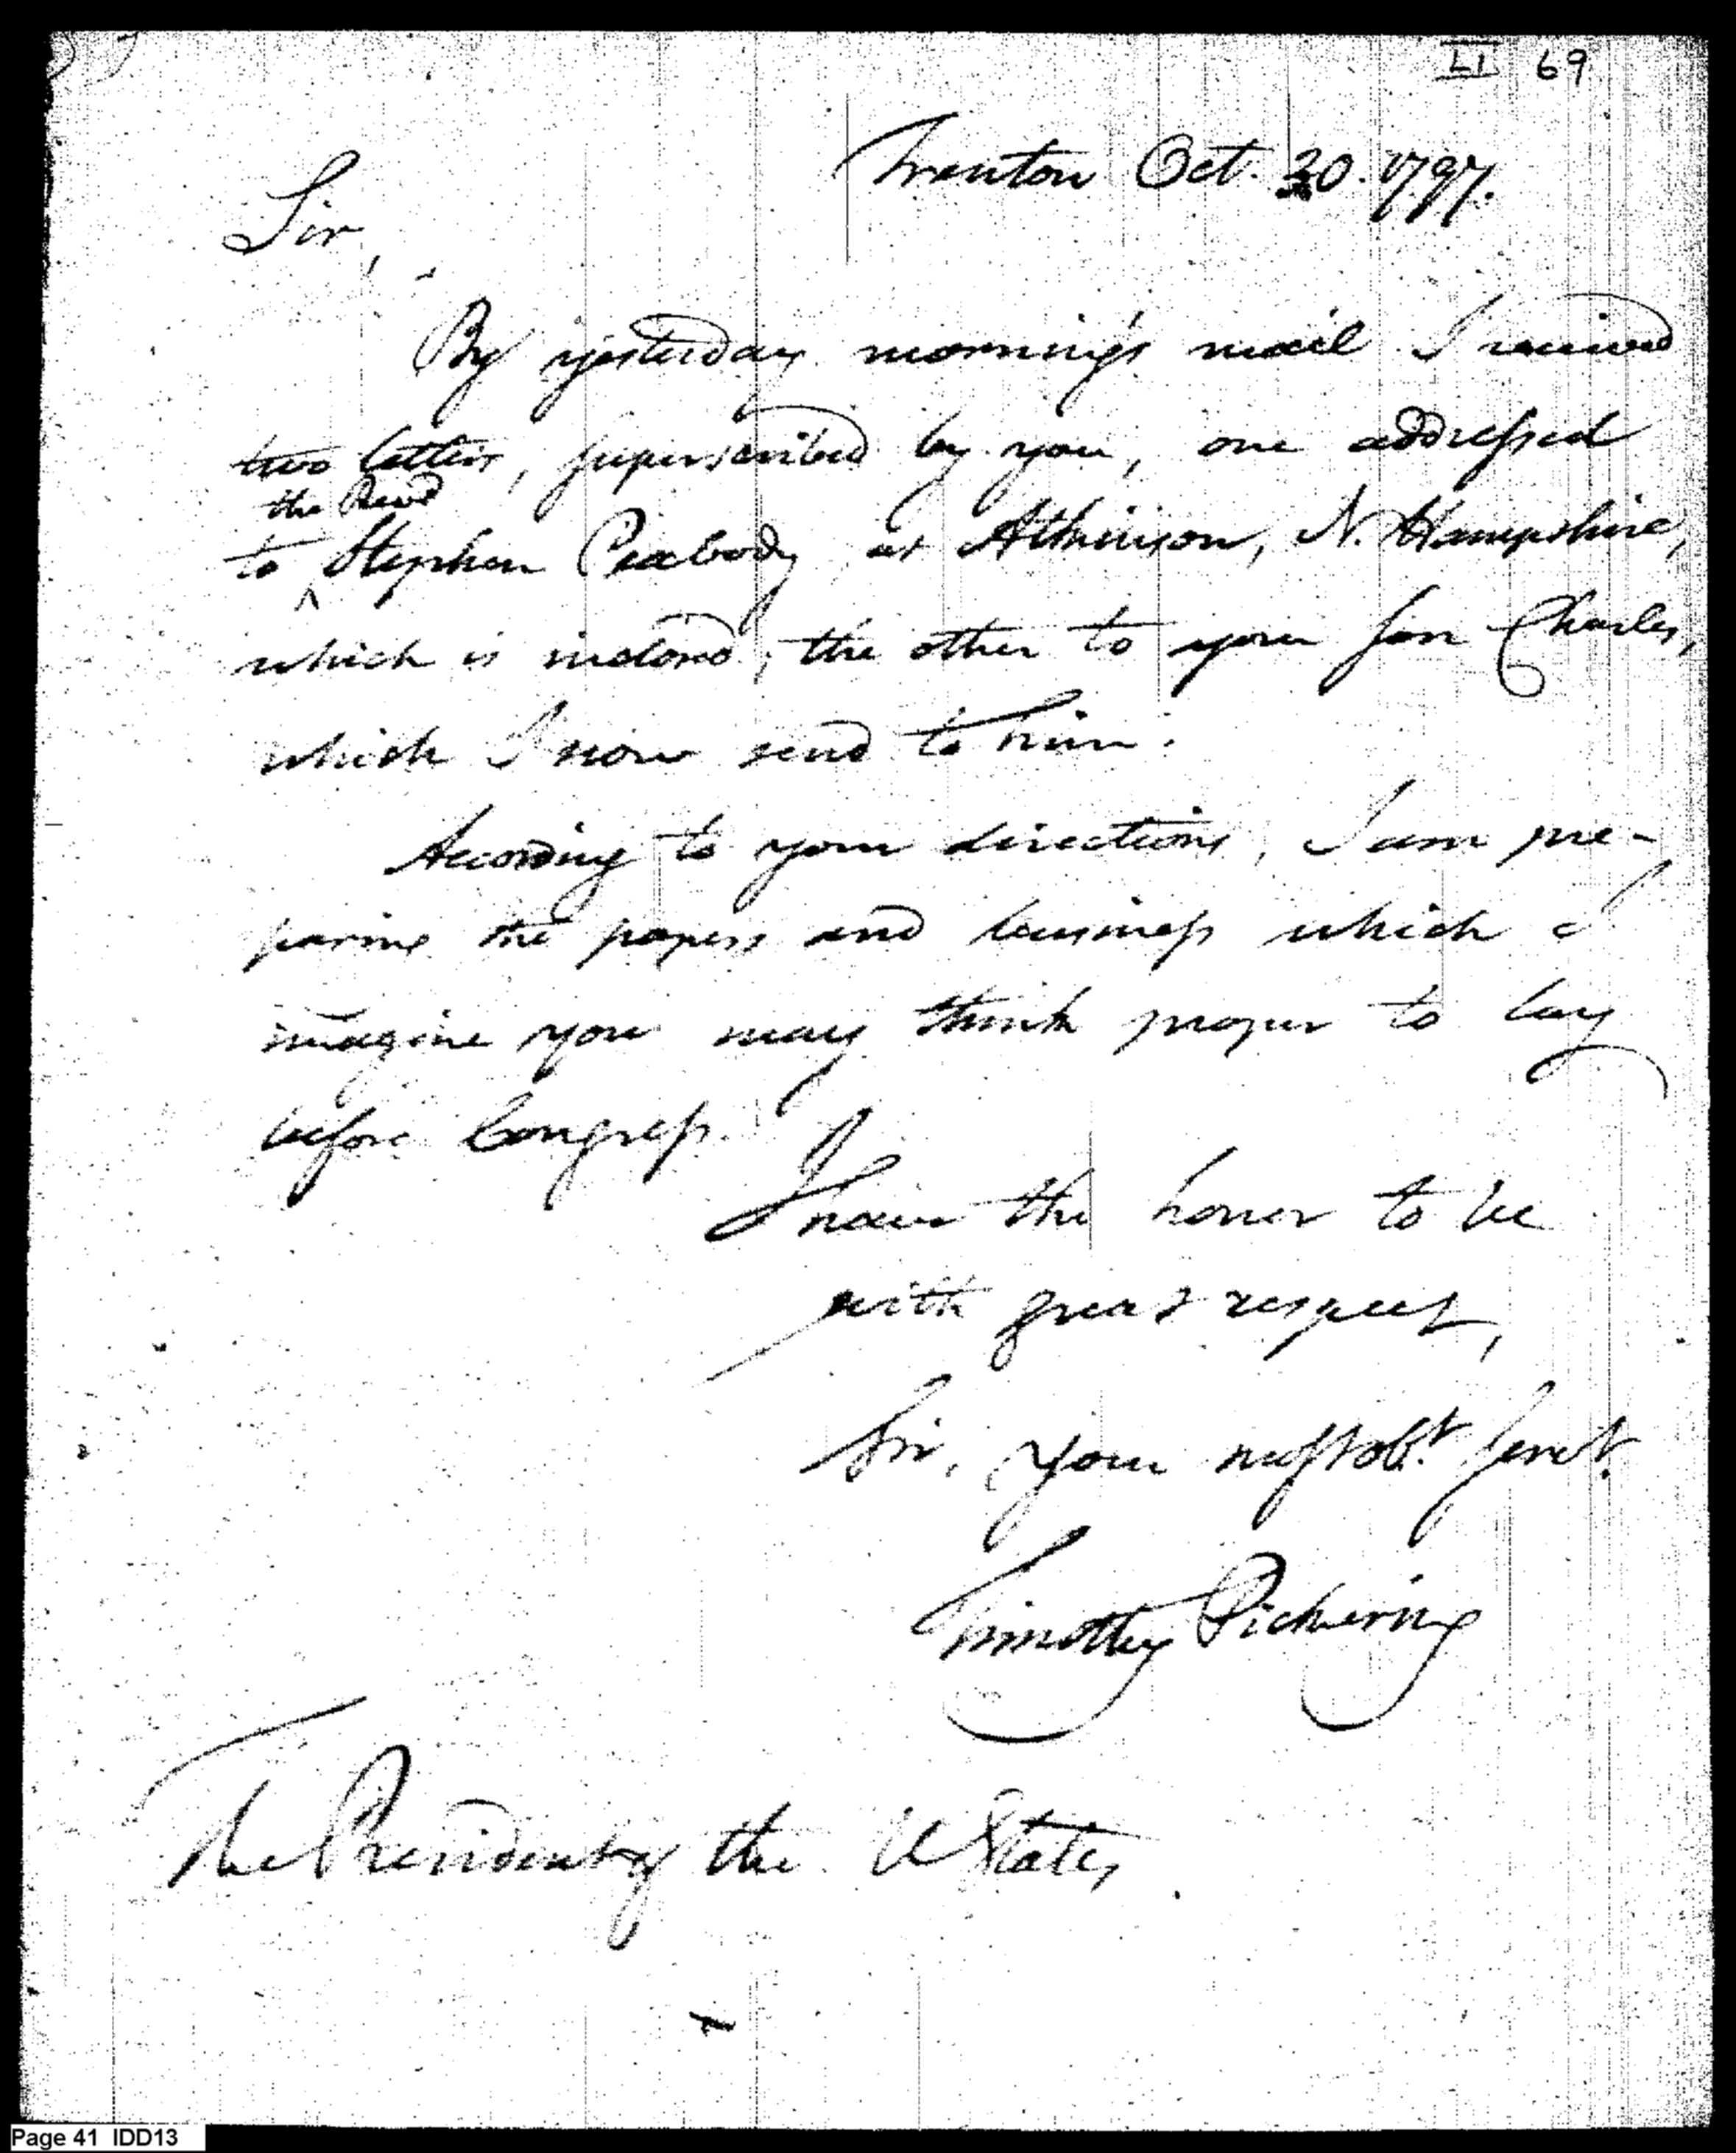 LI 69
Trenton Oct. 20. 1797.
Sir,
By yesterday morning's mail I received
two letters, superscribed by you, one addressed
the Revd
to ^ Stephen Peabody at Atkinson, N. Hampshire,
which is inclosed; the other to your son Charles,
which I now send to him.
According to your directions, I am pre-
paring the papers and business which I
imagine you may think proper to lay
before Congress.
I have the honor to be
with great respect,
Sir, your most obt. servt.
Timothy Pickering
The President of the U States.
Page 41 IDD13